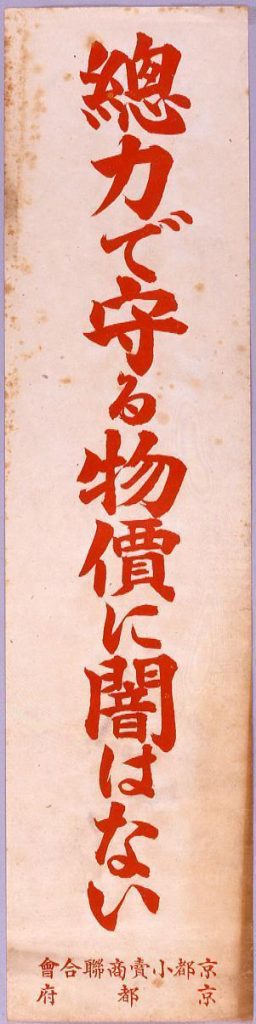 總力で守る物價に闇はない
京都小賣商聯合會
京都府